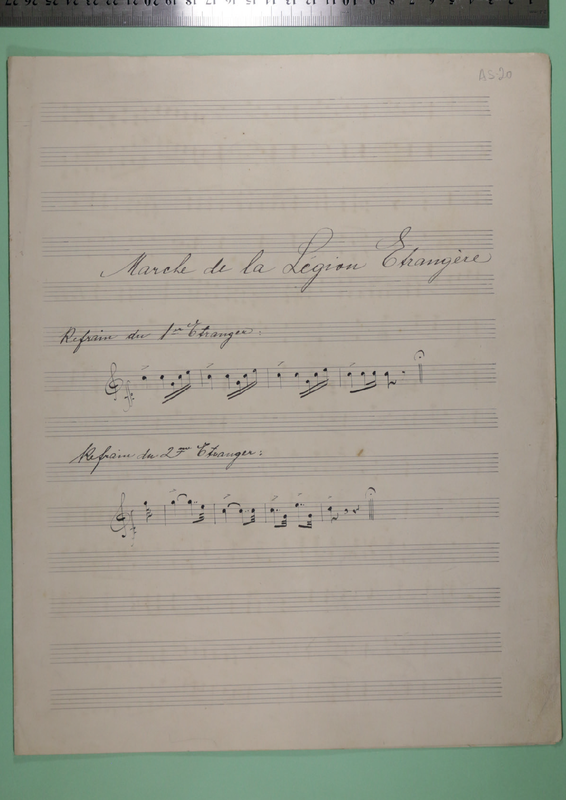 AS20
Marche de la Légion Etrangère
Refrain du 1er Etranger:
Refrain du 2me Etranger: